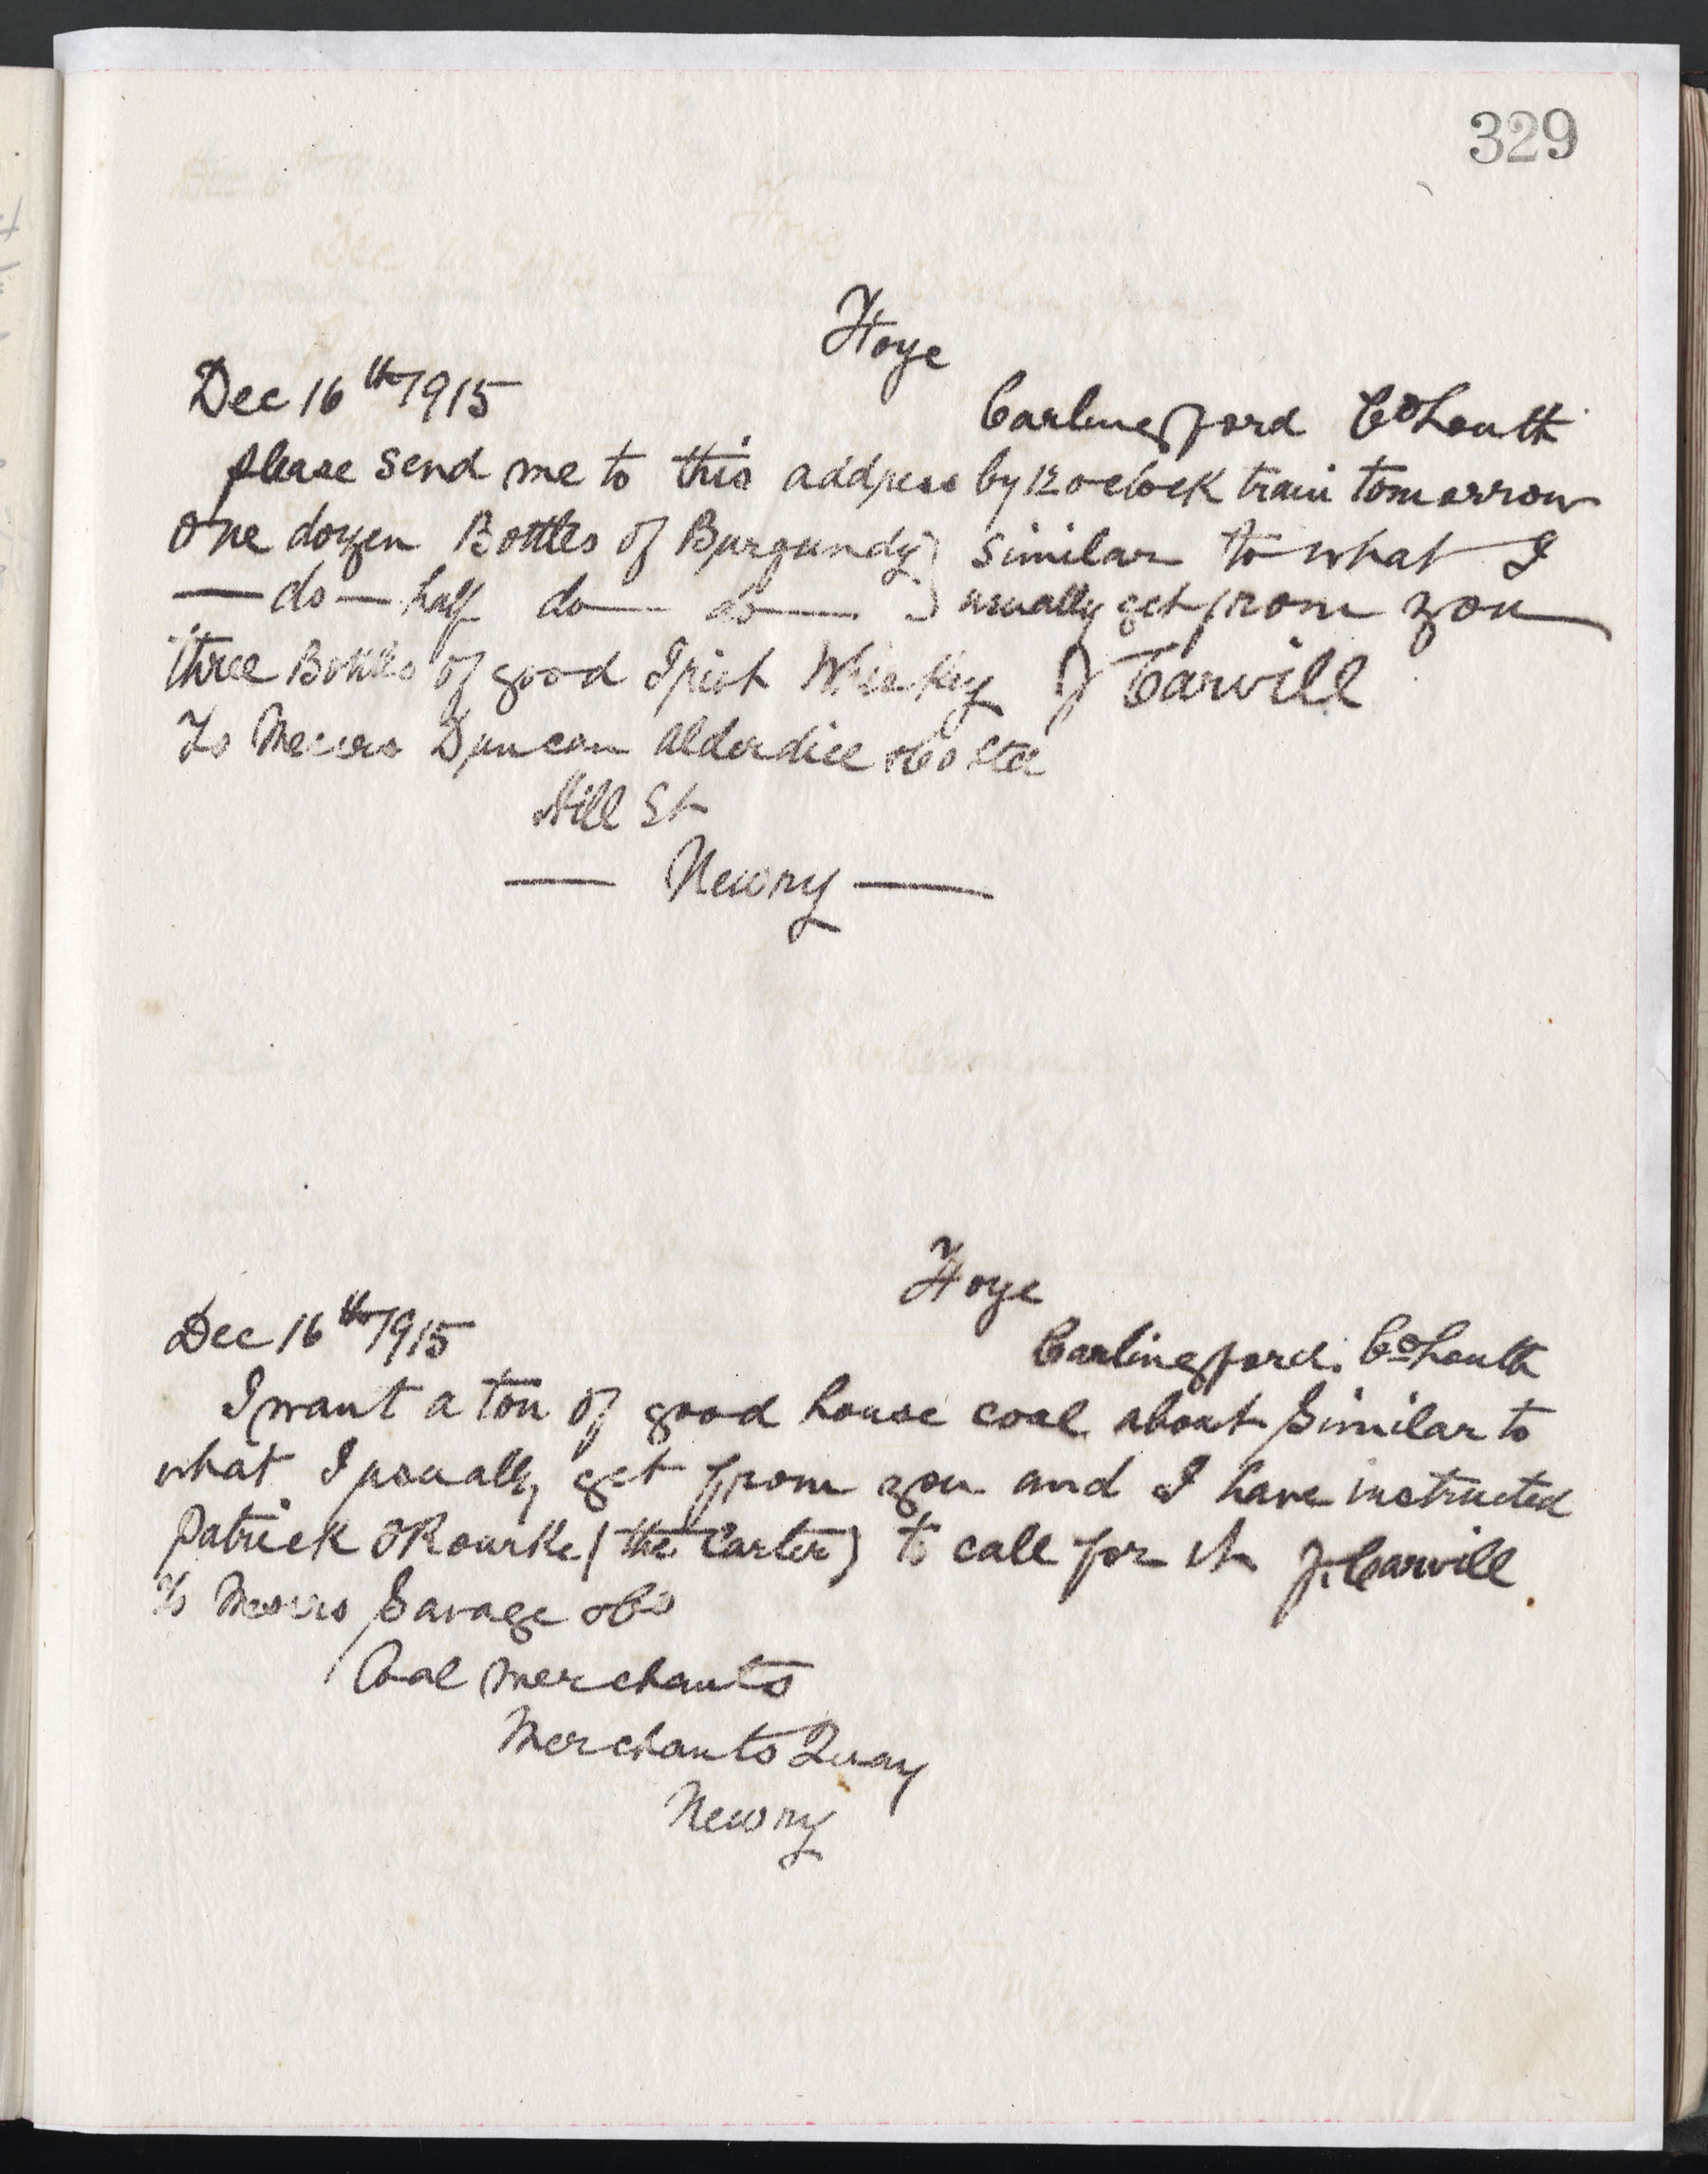 329
Hoye
Dec 16th 1915
Carlingford Co Louth
please send me to this address by 12 o clock train tomorrow
one dozen Bottles of Burgundy } similar to what I
— do — half do — do — } usually get from you
three Bottles of good Irish Whiskey J Carvill
To Messrs Duncan Alderdice & Co Ltd
Hill St
— Newry —
Hoye
Dec 16th 1915
Carlingford. Co Louth
I want a ton of good house coal about similar to
what I usually get from you and I have instructed
Patrick ORourke (the Carter) to call for it J. Carvill
To Messrs Savage & Co
Coal Merchants
Merchants Quay
Newry